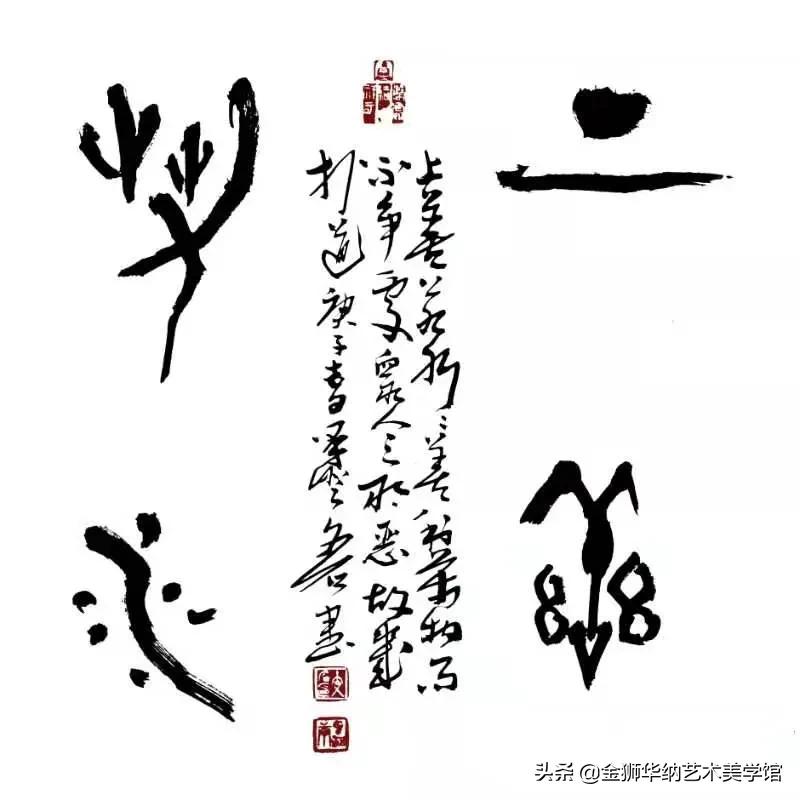 上
善
若
水
上善若水〻善利萬物而
不争處眾人之所惡故幾
於道庚子春書
头条 @金狮华纳艺术美学馆